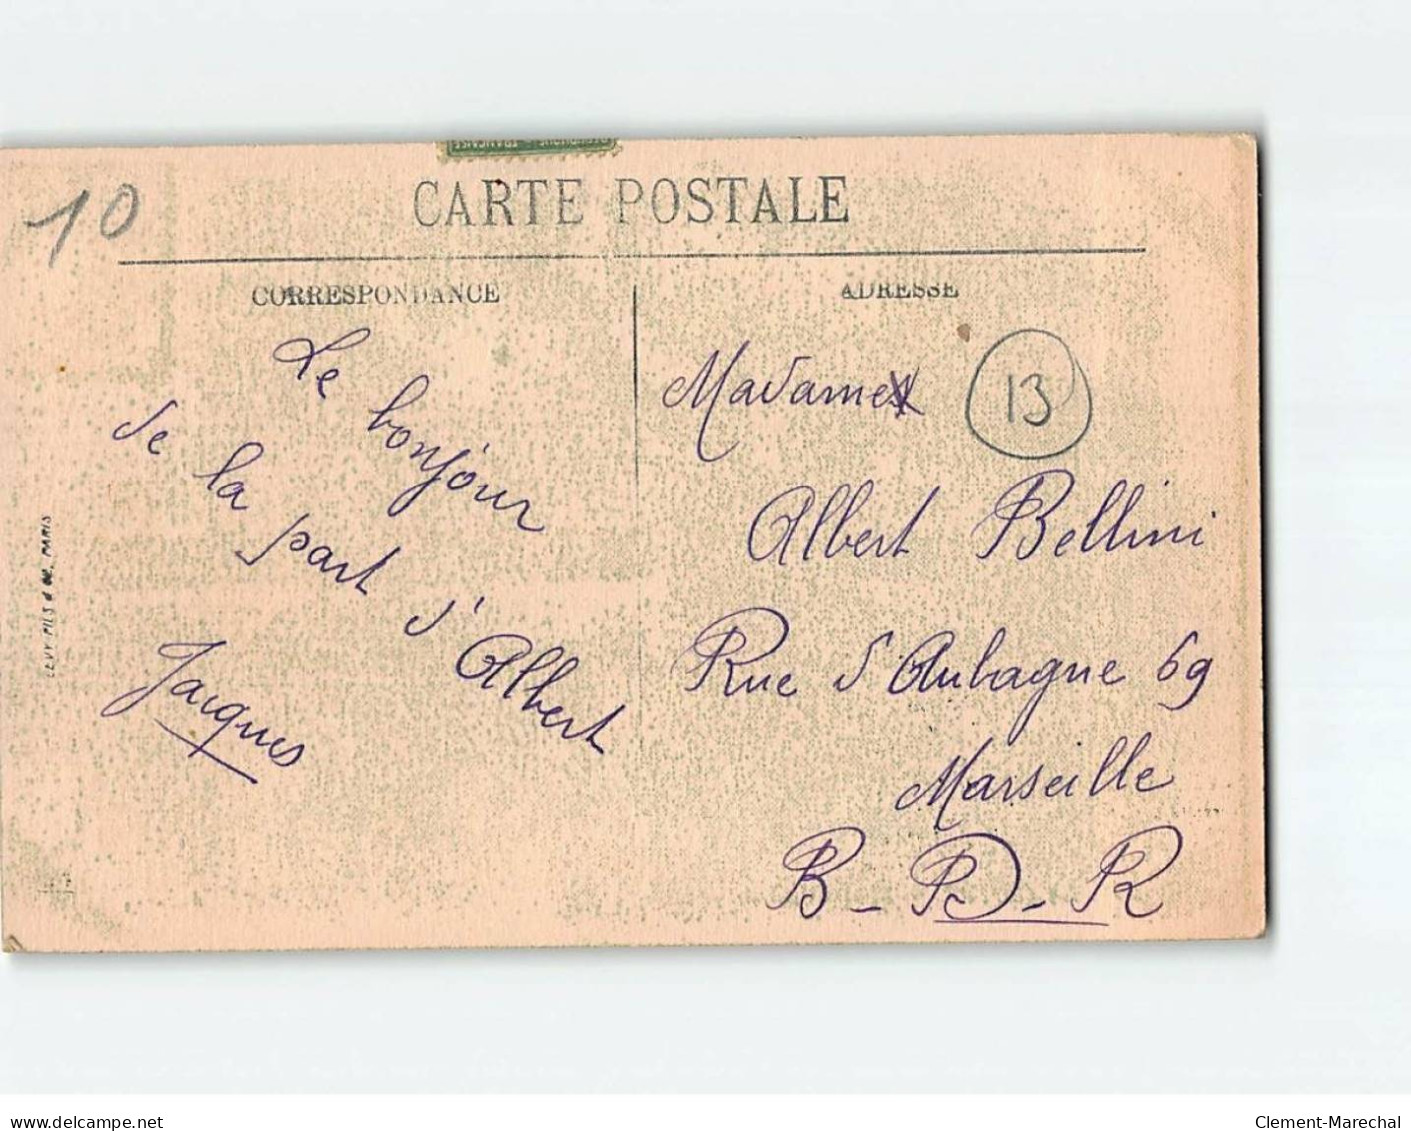 10
CARTE POSTALE
CORRESPONDANCE
ADRESSE
Le bonjour
de la part d'Albert
Jacques
Madame
13
Albert Bellini
Rue d'Aubagne 69
Marseille
B-D-R
LEVY FILS & CIE, PARIS
www.delcampe.net
Clement-Marechal